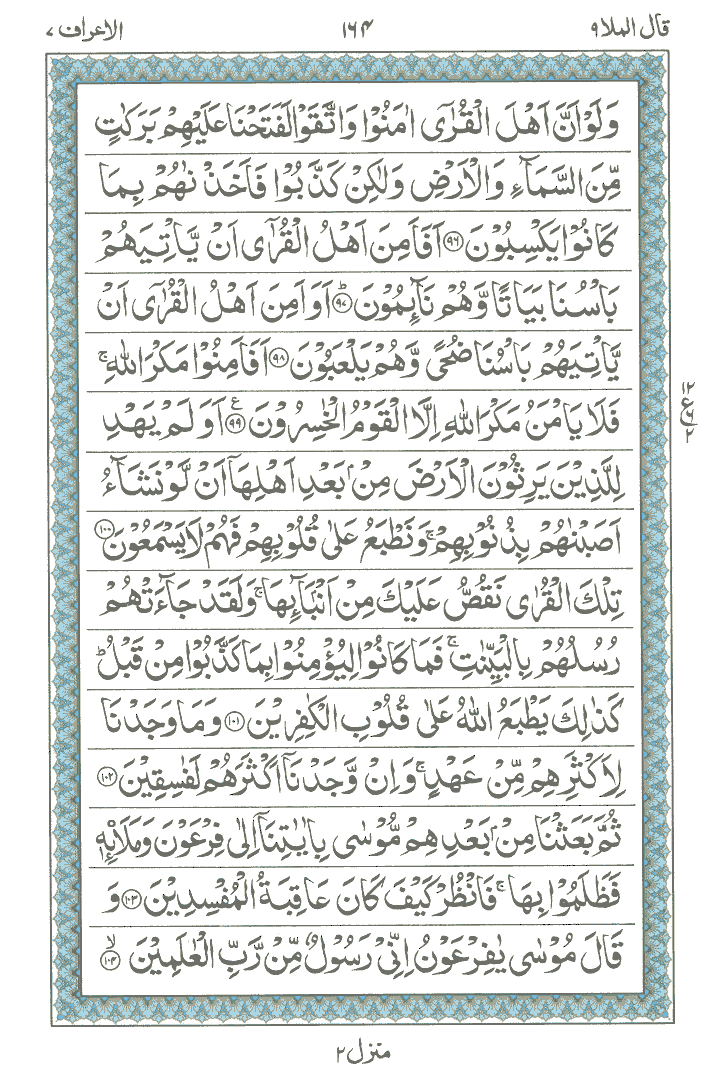 قال الملا ٩ ١٦٤ الاعراف ٧
وَلَوْ اَنَّ اَهْلَ الْقُرٰٓى اٰمَنُوْا وَاتَّقَوْا لَفَتَحْنَا عَلَيْهِمْ بَرَكٰتٍ
مِّنَ السَّمَآءِ وَالْاَرْضِ وَلٰكِنْ كَذَّبُوْا فَاَخَذْنٰهُمْ بِمَا
كَانُوْا يَكْسِبُوْنَ ﴿٩٦﴾ اَفَاَمِنَ اَهْلُ الْقُرٰٓى اَنْ يَّاْتِيَهُمْ
بَاْسُنَا بَيَاتًا وَّهُمْ نَآئِمُوْنَ ؕ﴿٩٧﴾ اَوَ اَمِنَ اَهْلُ الْقُرٰٓى اَنْ
يَّاْتِيَهُمْ بَاْسُنَا ضُحًى وَّهُمْ يَلْعَبُوْنَ ﴿٩٨﴾ اَفَاَمِنُوْا مَكْرَ اللّٰهِ ۚ
فَلَا يَاْمَنُ مَكْرَ اللّٰهِ اِلَّا الْقَوْمُ الْخٰسِرُوْنَ ﴿٩٩﴾ ع اَوَلَمْ يَهْدِ
١٢ ع ٦ ٢
لِلَّذِيْنَ يَرِثُوْنَ الْاَرْضَ مِنْۢ بَعْدِ اَهْلِهَآ اَنْ لَّوْ نَشَآءُ
اَصَبْنٰهُمْ بِذُنُوْبِهِمْ ۚ وَنَطْبَعُ عَلٰى قُلُوْبِهِمْ فَهُمْ لَا يَسْمَعُوْنَ ﴿١٠٠﴾
تِلْكَ الْقُرٰى نَقُصُّ عَلَيْكَ مِنْ اَنْۢبَآئِهَا ۚ وَلَقَدْ جَآءَتْهُمْ
رُسُلُهُمْ بِالْبَيِّنٰتِ ۚ فَمَا كَانُوْا لِيُؤْمِنُوْا بِمَا كَذَّبُوْا مِنْ قَبْلُ ؕ
كَذٰلِكَ يَطْبَعُ اللّٰهُ عَلٰى قُلُوْبِ الْكٰفِرِيْنَ ﴿١٠١﴾ وَمَا وَجَدْنَا
لِاَكْثَرِهِمْ مِّنْ عَهْدٍ ۚ وَاِنْ وَّجَدْنَآ اَكْثَرَهُمْ لَفٰسِقِيْنَ ﴿١٠٢﴾
ثُمَّ بَعَثْنَا مِنْۢ بَعْدِهِمْ مُّوْسٰى بِاٰيٰتِنَآ اِلٰى فِرْعَوْنَ وَمَلَا۟ئِهٖ
فَظَلَمُوْا بِهَا ۚ فَانْظُرْ كَيْفَ كَانَ عَاقِبَةُ الْمُفْسِدِيْنَ ﴿١٠٣﴾ وَ
قَالَ مُوْسٰى يٰفِرْعَوْنُ اِنِّيْ رَسُوْلٌ مِّنْ رَّبِّ الْعٰلَمِيْنَ ۙ﴿١٠٤﴾
منزل ٢